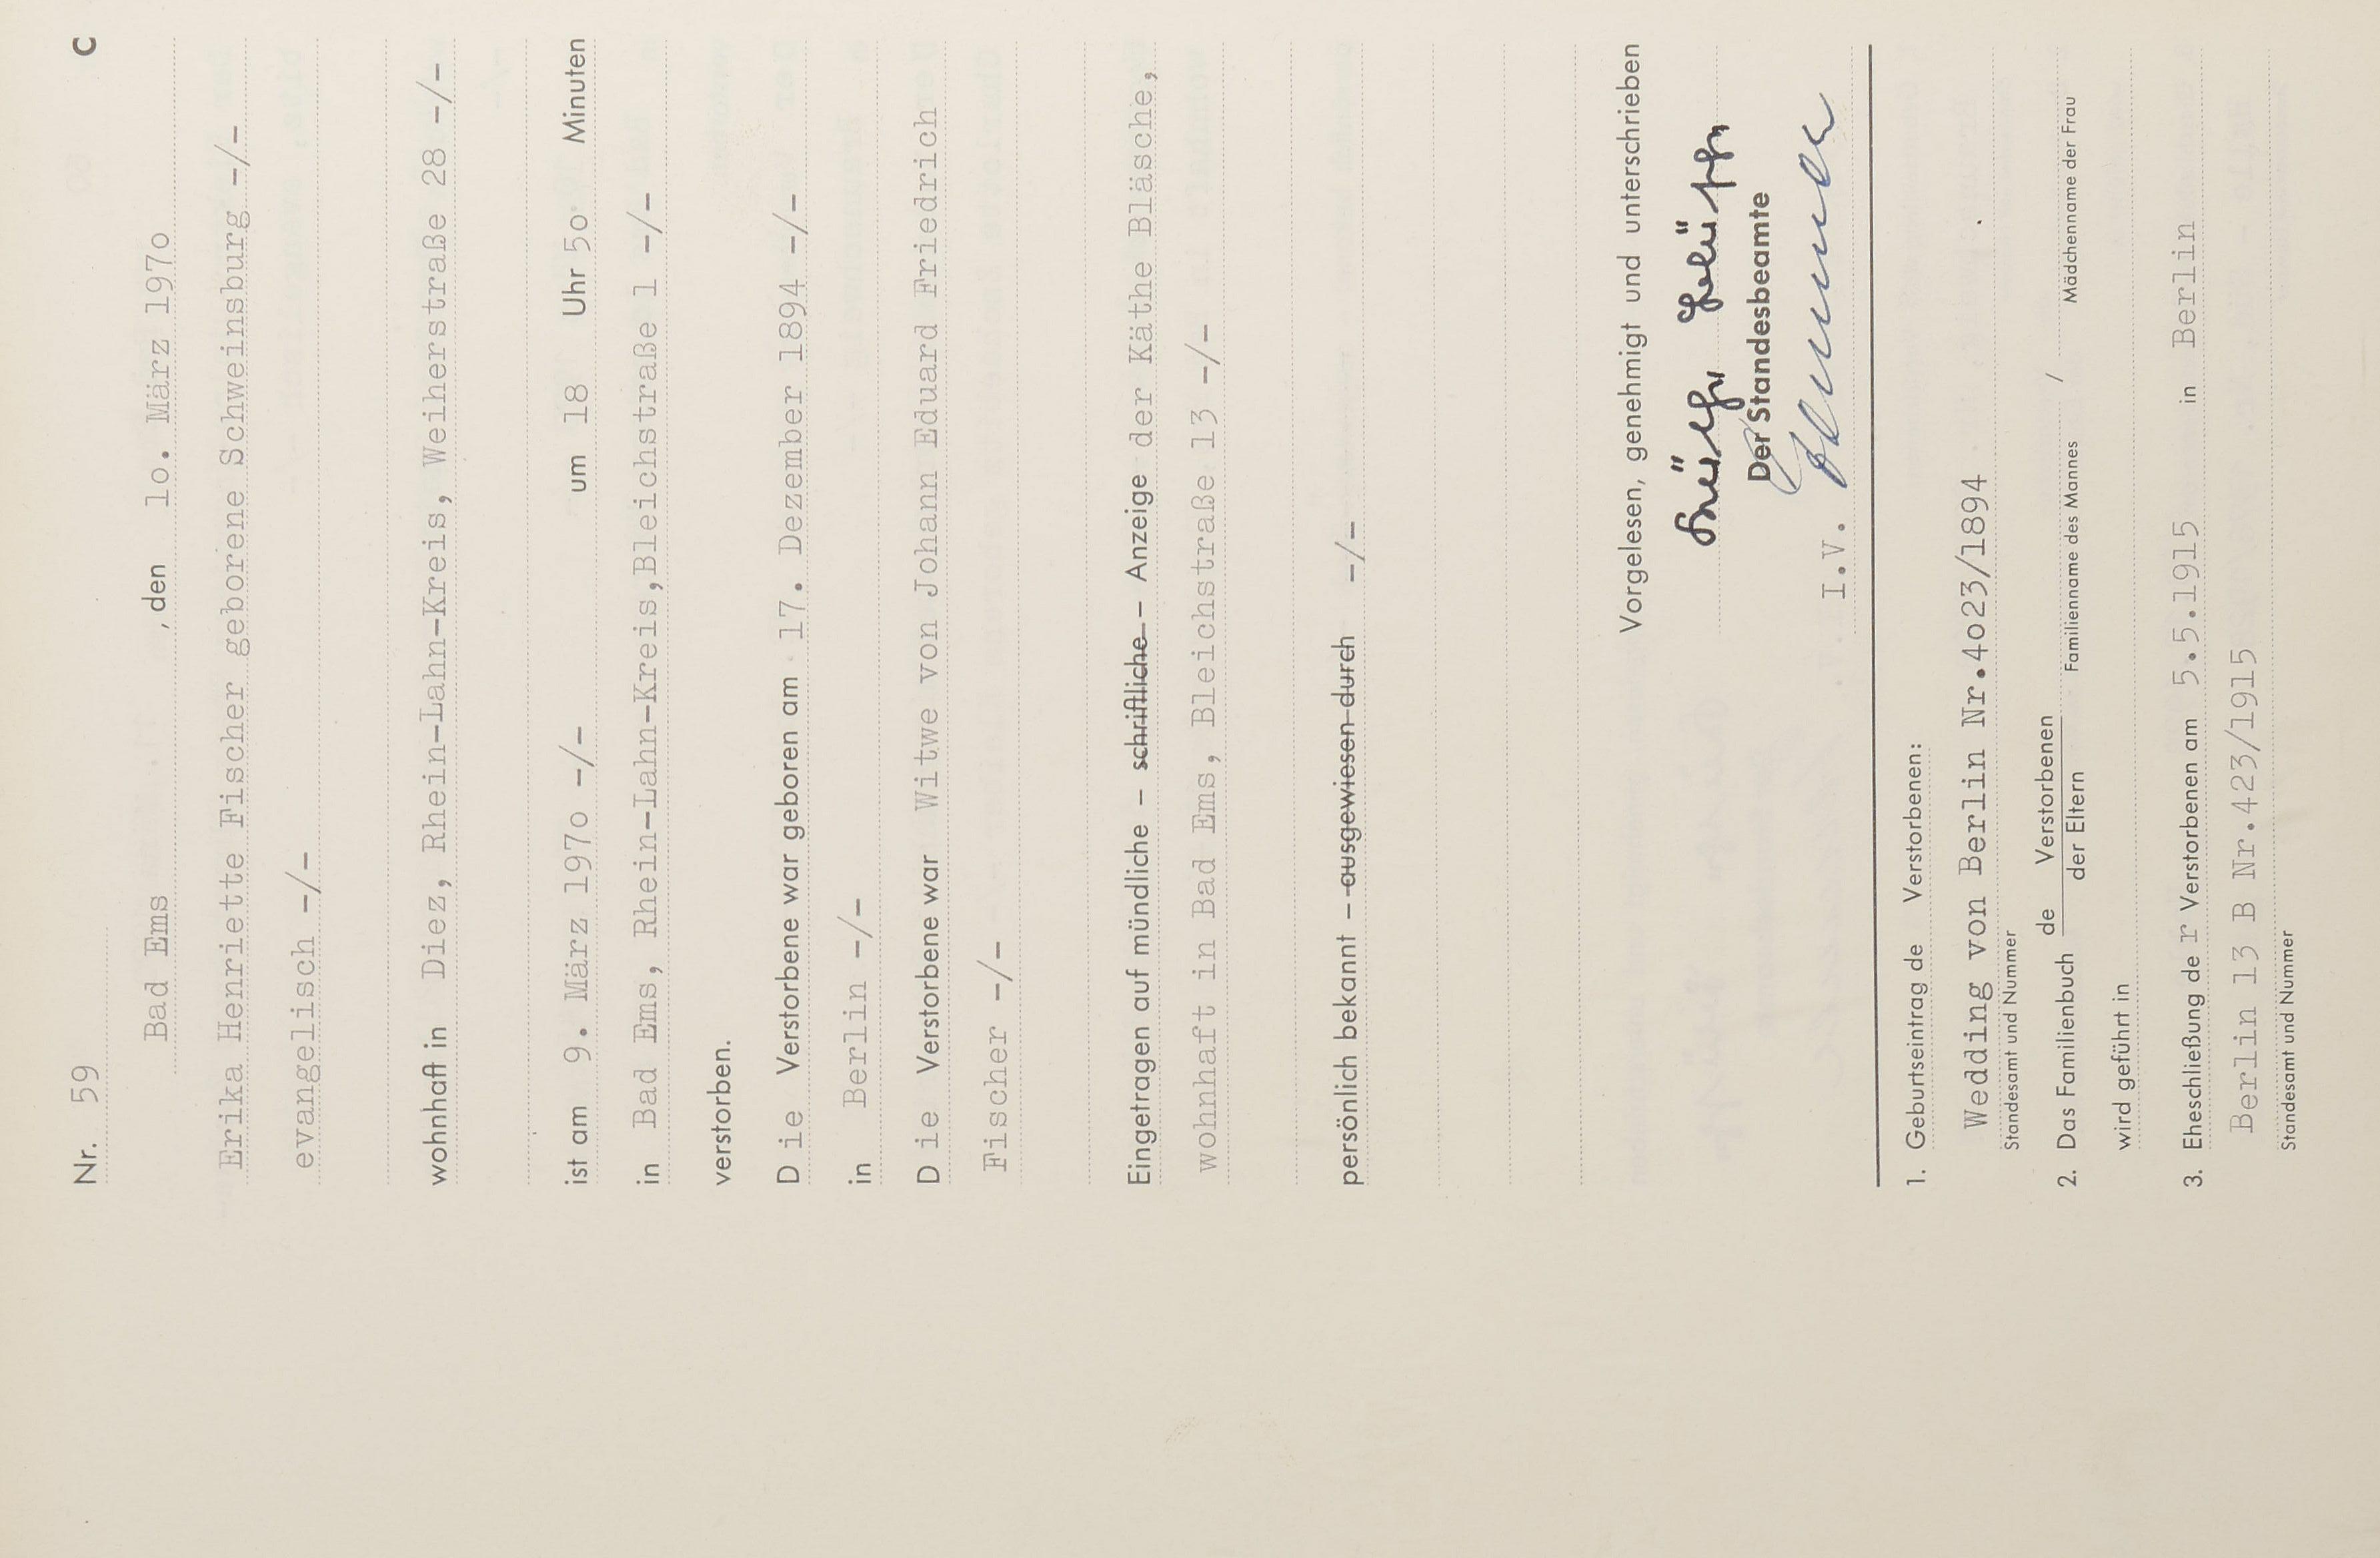 Nr. 59 C
Bad Ems , den 1o. März 197o
Erika Henriette Fischer geborene Schweinsburg -/-
evangelisch -/-
wohnhaft in Diez, Rhein-Lahn-Kreis, Weiherstraße 28 -/-
ist am 9. März 197o -/- um 18 Uhr 5o Minuten
in Bad Ems, Rhein-Lahn-Kreis,Bleichstraße 1 -/-
verstorben.
D ie Verstorbene war geboren am 17. Dezember 1894 -/-
in Berlin -/-
D ie Verstorbene war Witwe von Johann Eduard Friedrich
Fischer -/-
Eingetragen auf mündliche – schriftliche – Anzeige der Käthe Bläsche,
wohnhaft in Bad Ems, Bleichstraße 13 -/-
persönlich bekannt – ausgewiesen durch -/-
Vorgelesen, genehmigt und unterschrieben
Der Standesbeamte
I.V.
1. Geburtseintrag de Verstorbenen:
Wedding von Berlin Nr.4o23/1894
Standesamt und Nummer
2. Das Familienbuch de Verstorbenen / der Eltern
Familienname des Mannes / Mädchenname der Frau
wird geführt in
3. Eheschließung de r Verstorbenen am 5.5.1915 in Berlin
Berlin 13 B Nr.423/1915
Standesamt und Nummer